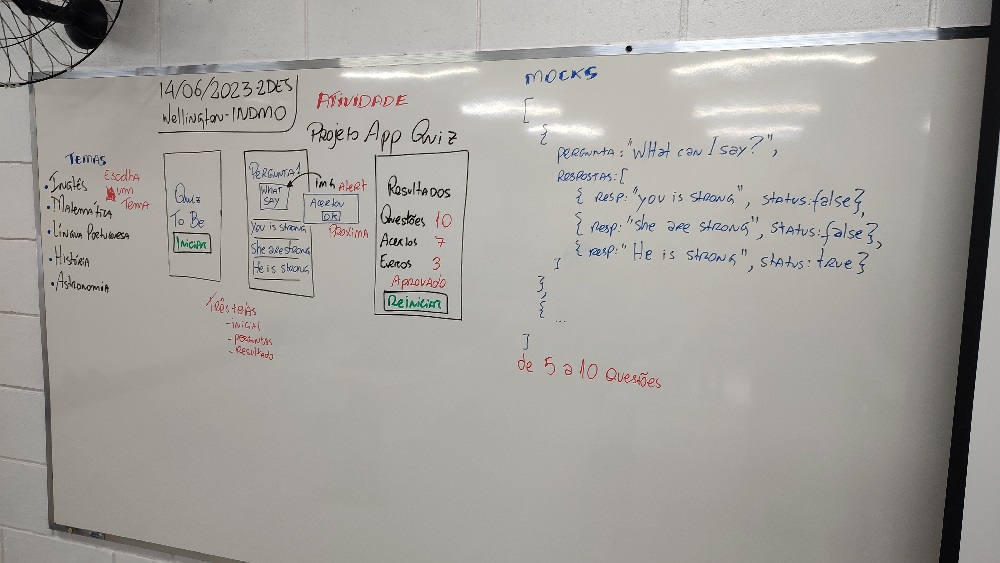 14/06/2023-2DES
Wellington-INDMO
ATIVIDADE
Projeto App Quiz
TEMAS
Escolha
um
TEMA
• Inglês
• Matemática
• Língua Portuguesa
• História
• Astronomia
Quiz
To Be
Iniciar
PERGUNTA 1
WHAT
SAY
img
Alert
Acertou
OK
PRÓXIMA
You is strong
She are strong
He is strong
Resultados
Questões 10
Acertos 7
Erros 3
Aprovado
Reiniciar
Três telas
- inicial
- perguntas
- Resultado
MOCKS
[
{
PERGUNTA: "WHat can I say?",
RESPOSTAS: [
{ RESP: "you is strong", status: false},
{ RESP: "She are strong", status: false},
{ RESP: "He is strong", status: true }
]
},
{
...
]
de 5 a 10 Questões